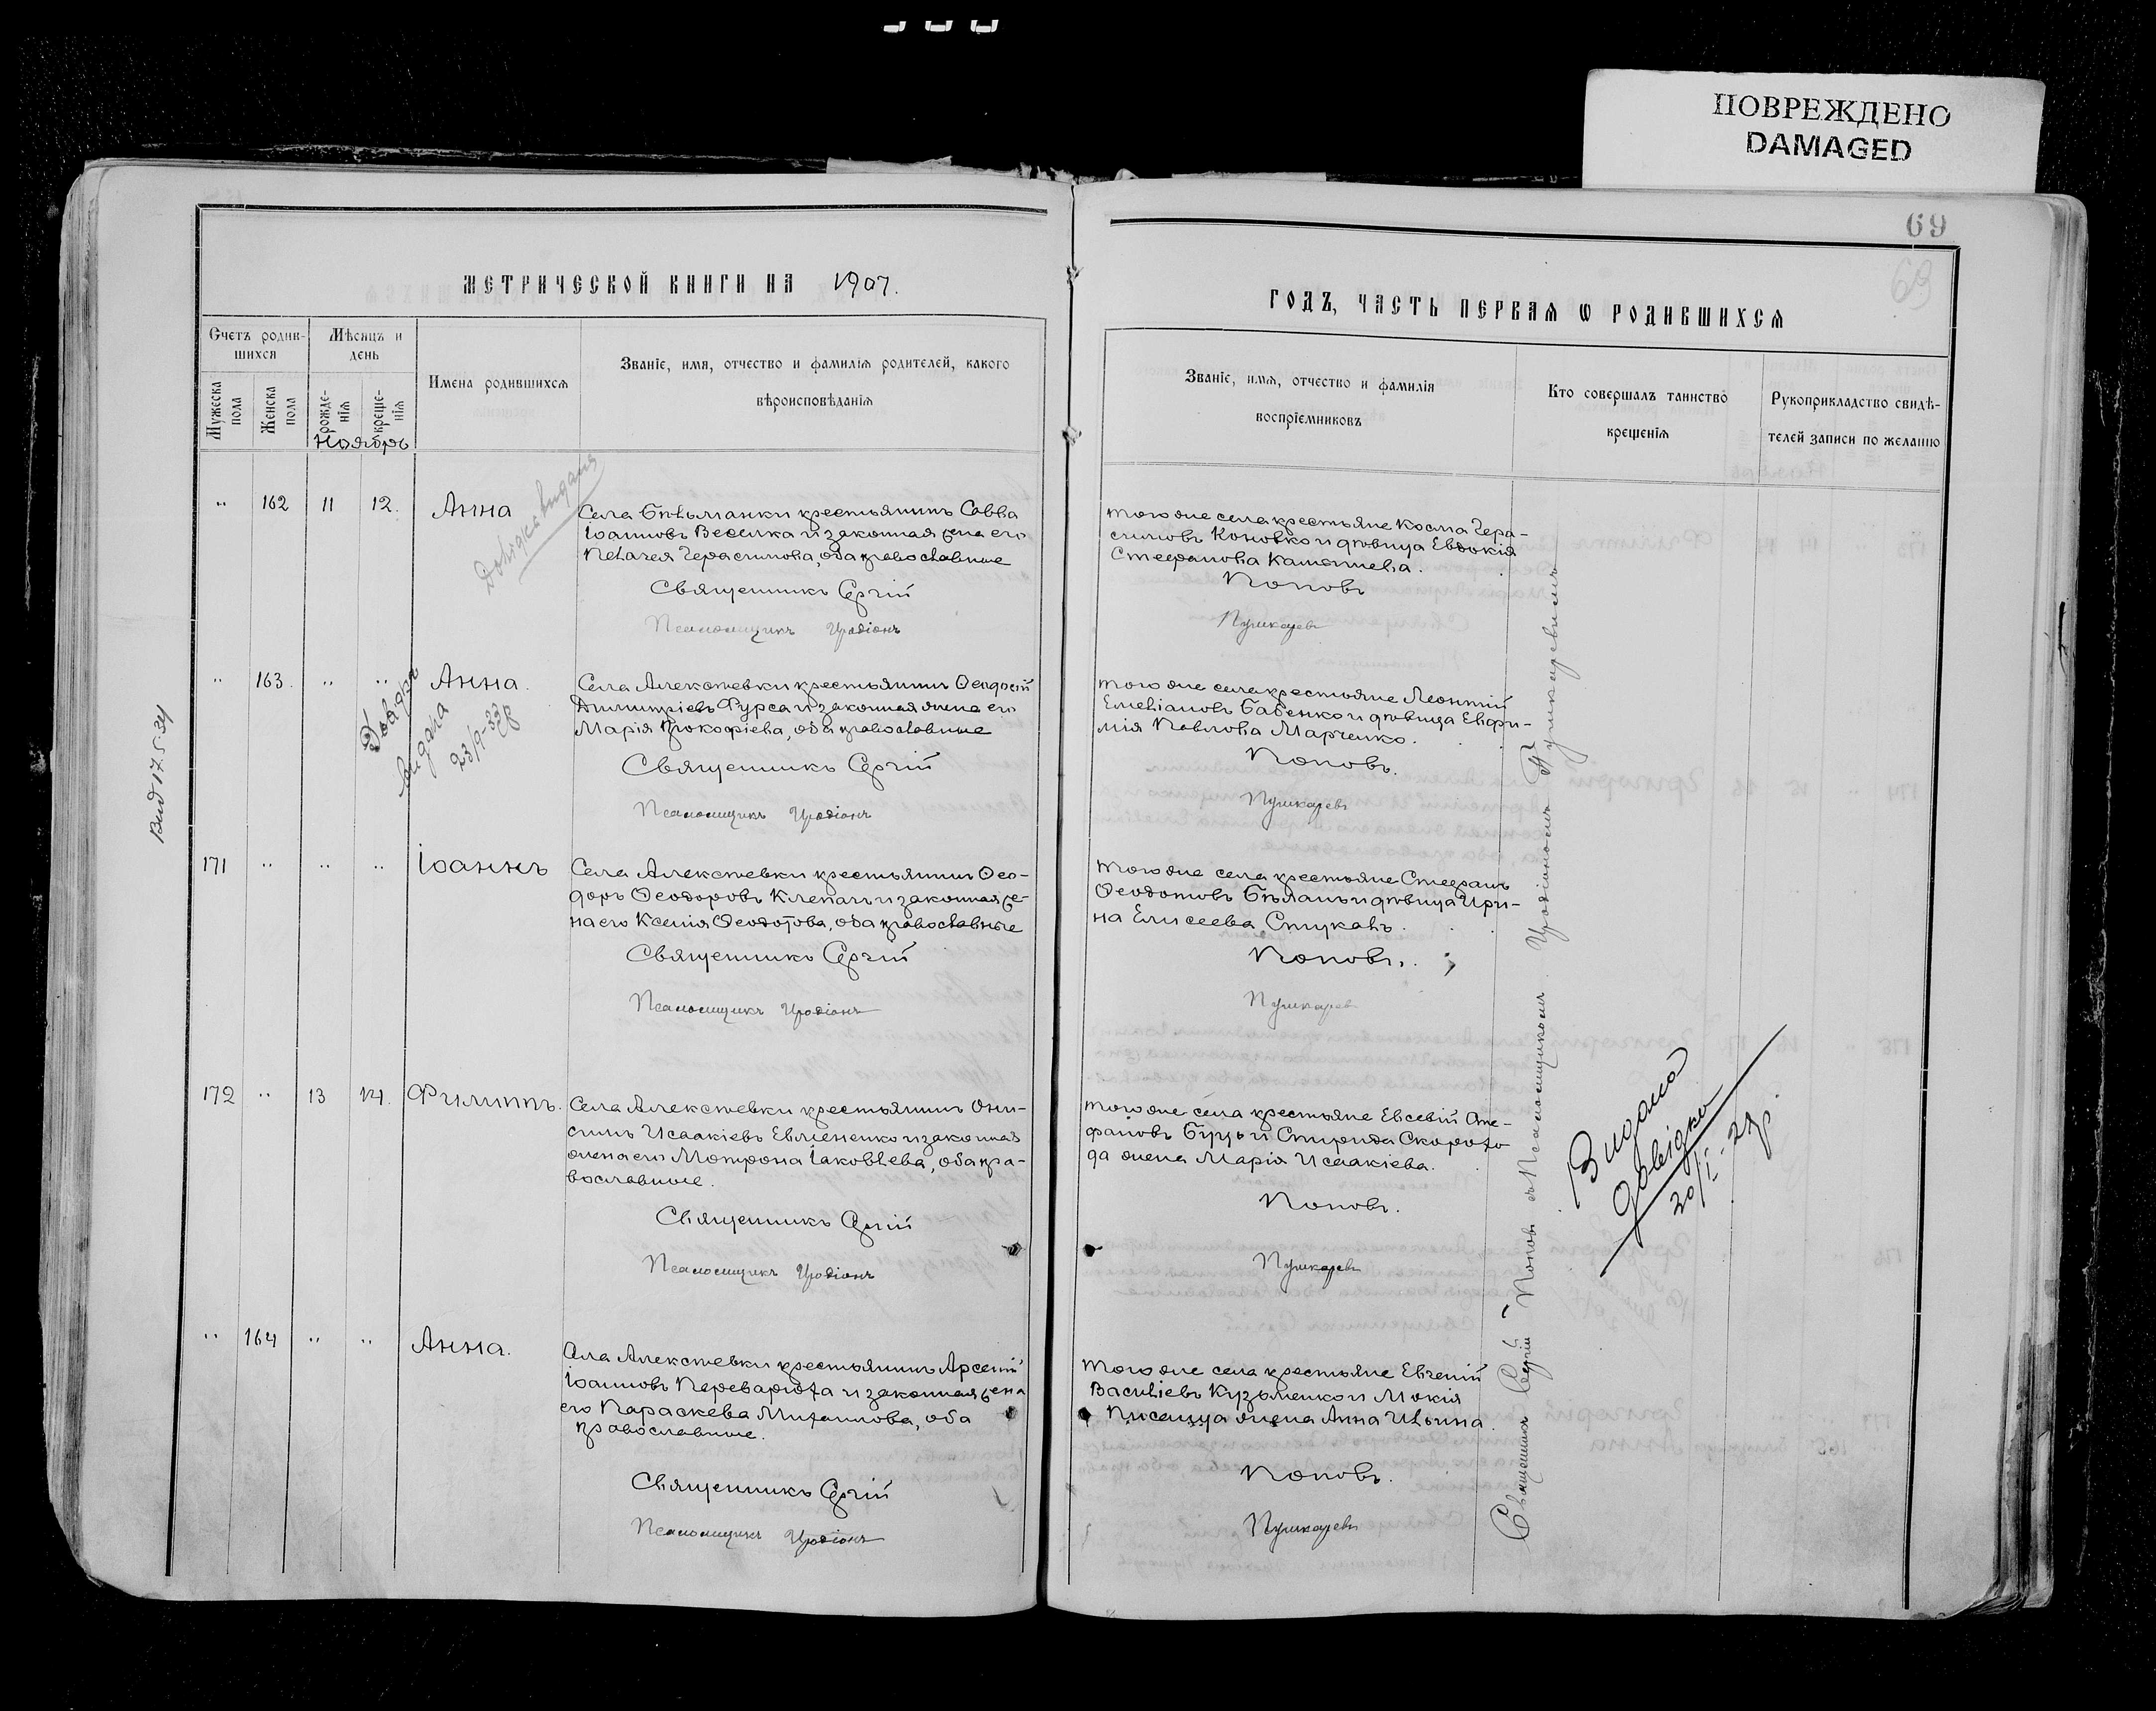 ПОВРЕЖДЕНО
DAMAGED
69
69
МЕТРИЧЕСКОЙ КНИГИ НА 1907.
ГОДЪ, ЧАСТЬ ПЕРВАѦ Ѡ РОДИВШИХСѦ
Счетъ родив-
шихся
Мѣсяцъ и
день
Мужеска
пола
Женска
пола
рожде-
нія
креще-
нія
Имена родившихся
Званіе, имя, отчество и фамилія родителей, какого
вѣроисповѣданія
Званіе, имя, отчество и фамилія
воспріемниковъ
Кто совершалъ таинство
крещенія
Рукоприкладство свидѣ-
телей записи по желанію
Ноябрь
" 162 11 12. Анна
Довідка видана
Села Бѣльманки крестьянинъ Савва
Іоанновъ Веселка и законная жена его
Пелагея Герасимова, оба православные
Священникъ Сергій
Псаломщикъ Иродіонъ
того же села крестьяне Косма Гера-
симовъ Коновко и дѣвица Евдокія
Стефанова Камышева.
Поповъ
Пушкаревъ
" 163. " " Анна.
Довідка
видана
23/9-33
Вид 17.5.34
Села Алексѣевки крестьянинъ Ѳеодосій
Димитріевъ Фурса и законная жена его
Марія Прокофіева, оба православные
Священникъ Сергій
Псаломщикъ Иродіонъ
того же села крестьяне Леонтій
Емеліановъ Бабенко и дѣвица Евфи-
мія Павлова Марченко.
Поповъ.
Пушкаревъ
171 " " " Іоаннъ
Села Алексѣевки крестьянинъ Ѳео-
доръ Ѳеодоровъ Клепачъ и законная же-
на его Ксенія Ѳеодотова, оба православные
Священникъ Сергій
Псаломщикъ Иродіонъ
того же села крестьяне Стефанъ
Ѳеодотовъ Бѣланъ и дѣвица Ири-
на Елисеева Стукалъ.
Поповъ.
Пушкаревъ
172 " 13 14. Филиппъ.
Села Алексѣевки крестьянинъ Они-
симъ Исаакіевъ Евмененко и законная
жена его Матрона Іаковлева, оба пра-
вославные.
Священникъ Сергій
Псаломщикъ Иродіонъ
того же села крестьяне Евсевій Сте-
фановъ Буць и Спирида Скорохо
да жена Марія Исаакіева.
Поповъ.
Пушкаревъ
Видана
довідка
20/I-23р.
" 164 " " Анна.
Села Алексѣевки крестьянинъ Арсеній
Іоанновъ Переварюха и законная жена
его Параскева Михаилова, оба
православные.
Священникъ Сергій
Псаломщикъ Иродіонъ
того же села крестьяне Евгеній
Василіевъ Кузьменко и Мокія
Писанца жена Анна Ильина.
Поповъ.
Пушкаревъ
Священникъ Сергій Поповъ съ Псаломщикомъ Иродіономъ Пушкаревымъ